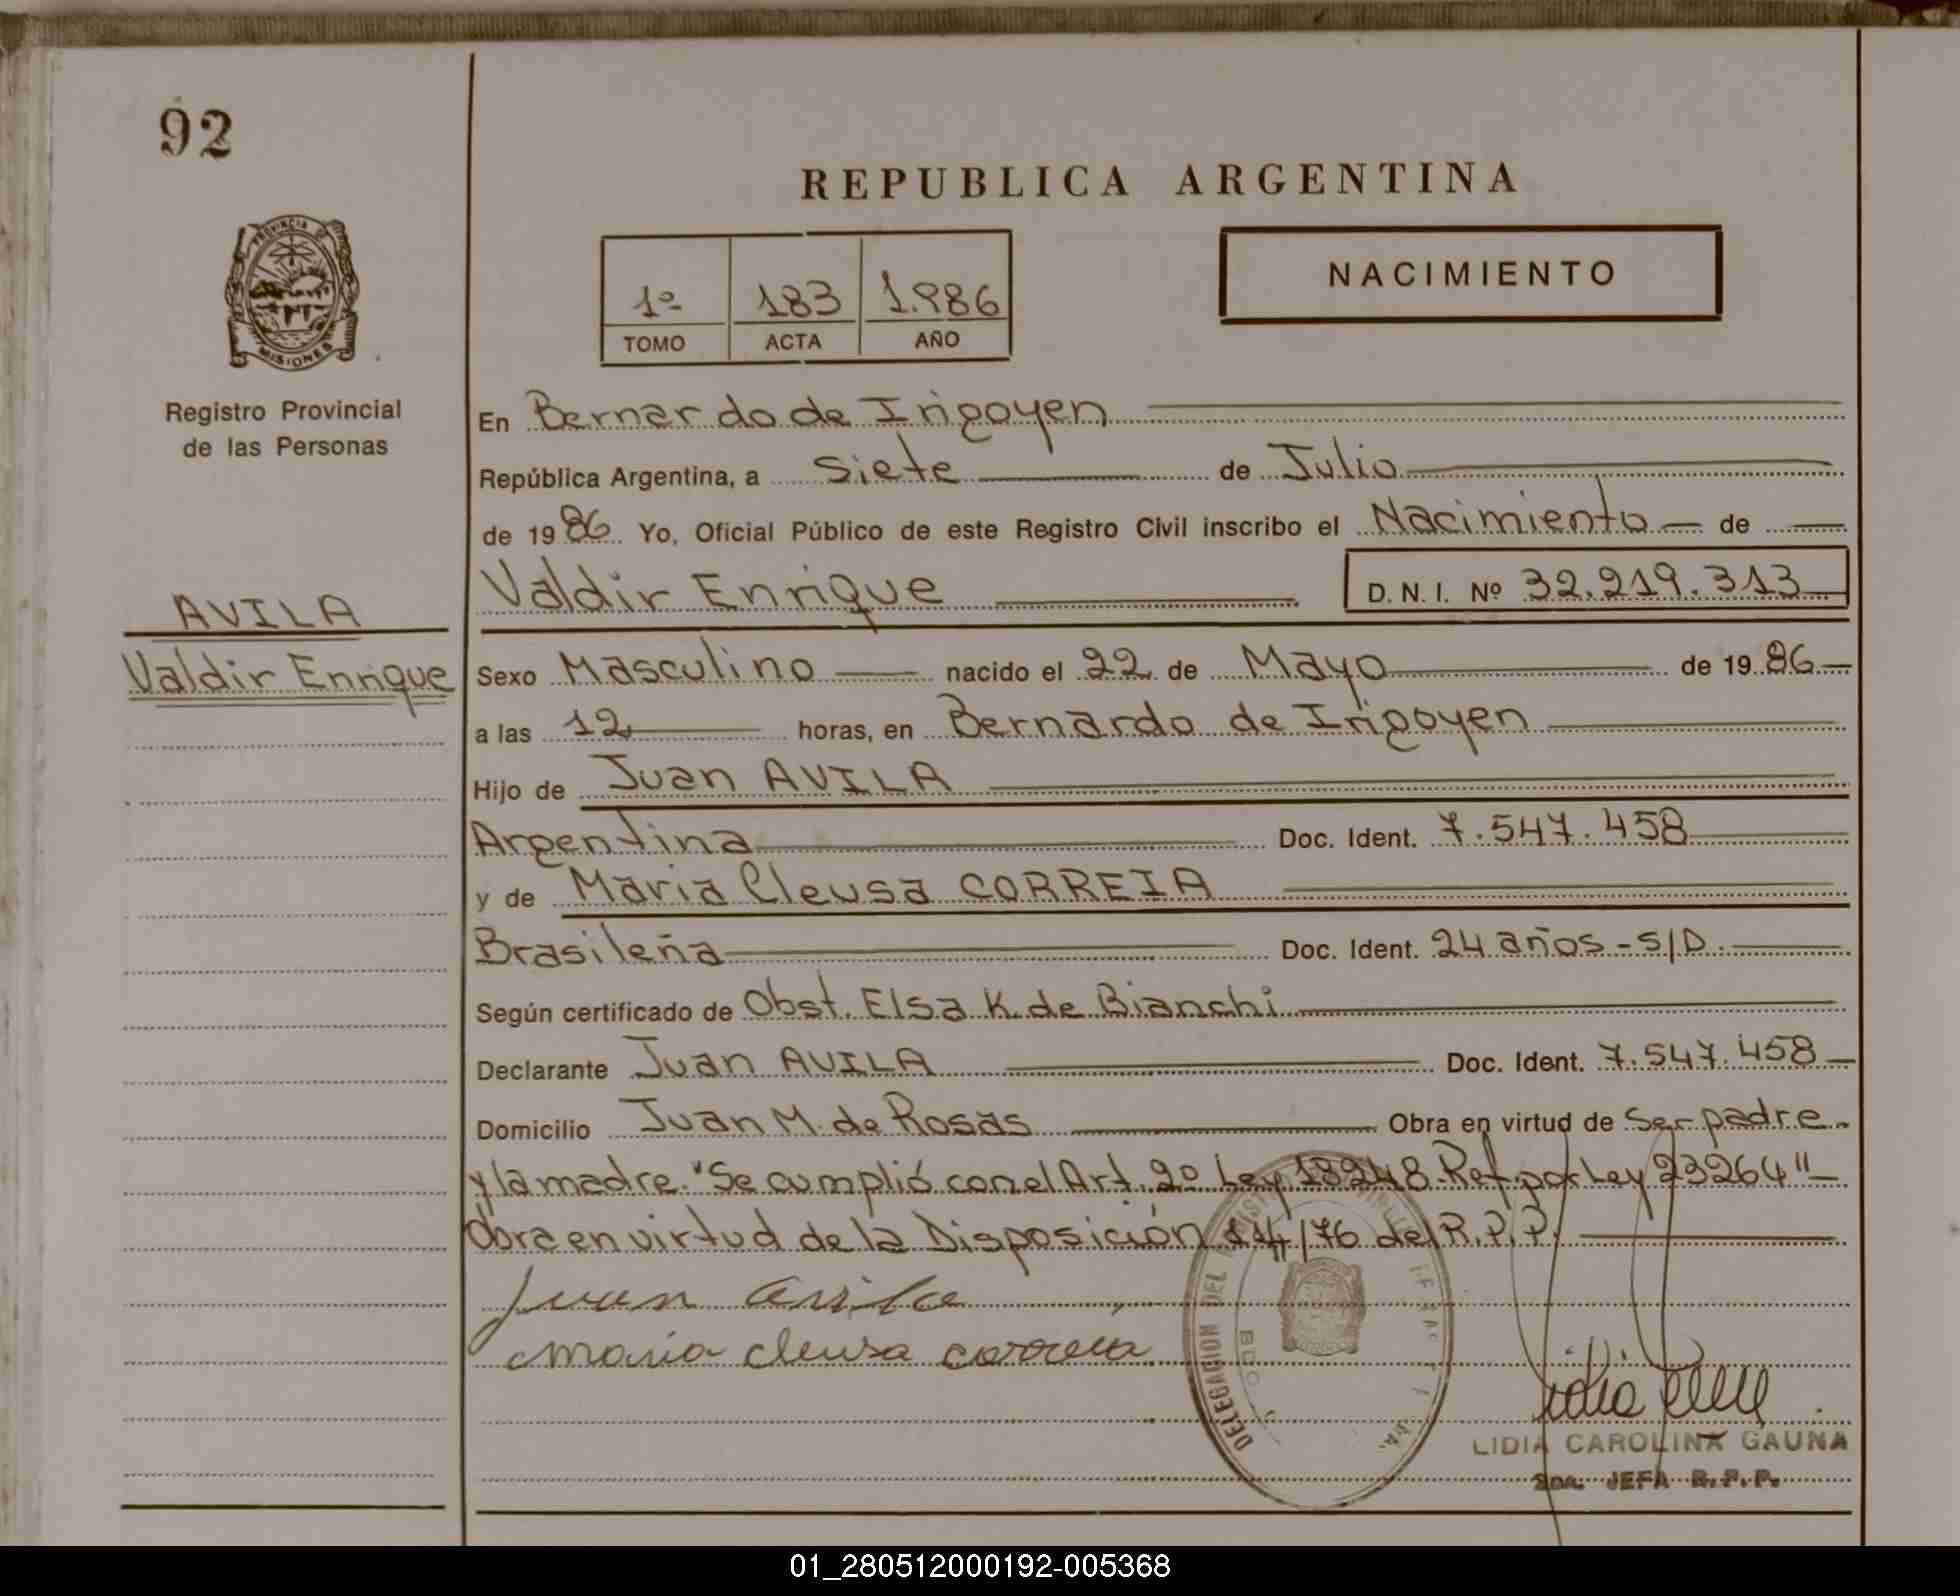 92
PROVINCIA DE
MISIONES
Registro Provincial
de las Personas
AVILA
Valdir Enrique
REPUBLICA ARGENTINA
1º 183 1.986
TOMO ACTA AÑO
NACIMIENTO
En Bernardo de Irigoyen
República Argentina, a Siete de Julio
de 1986 Yo, Oficial Público de este Registro Civil inscribo el Nacimiento de
Valdir Enrique D. N. I. Nº 32.219.313
Sexo Masculino nacido el 22 de Mayo de 1986
a las 12 horas, en Bernardo de Irigoyen
Hijo de Juan AVILA
Argentina Doc. Ident. 7.547.458
y de Maria Cleusa CORREIA
Brasileña Doc. Ident. 24 años - S/D.
Según certificado de Obst. Elsa K. de Bianchi
Declarante Juan AVILA Doc. Ident. 7.547.458
Domicilio Juan M. de Rosas Obra en virtud de ser padre
y la madre. "Se cumplió con el Art. 2º Ley 18248. Ref. por Ley 23264"
Obra en virtud de la Disposición 14/76 del R.P.P.
Juan Avila
Maria Cleusa Correia
DELEGACION DEL
LIDIA CAROLINA GAUNA
2DA. JEFA R.P.P.
01_280512000192-005368